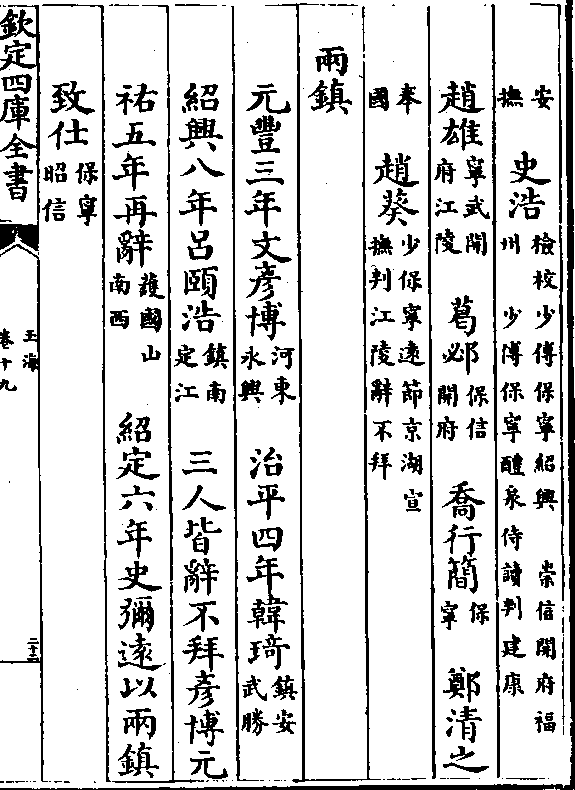 安撫 史浩 檢校少傅保寧紹興 崇信開府福州 少傅保寧醴泉侍讀判建康
趙雄 寧武開府江陵 葛邲 保信開府 喬行簡 保寧 鄭清之
奉國 趙葵 少保寧遠節京湖宣撫判江陵辭不拜
兩鎮
元豐三年文彦博 河東永興 治平四年韓琦 鎮安武勝
紹興八年吕頤浩 鎮南定江 三人皆辭不拜彦博元
祐五年再辭 護國山南西 紹定六年史彌遠以兩鎮
致仕 保寧昭信
欽定四庫全書
玉海
卷十九